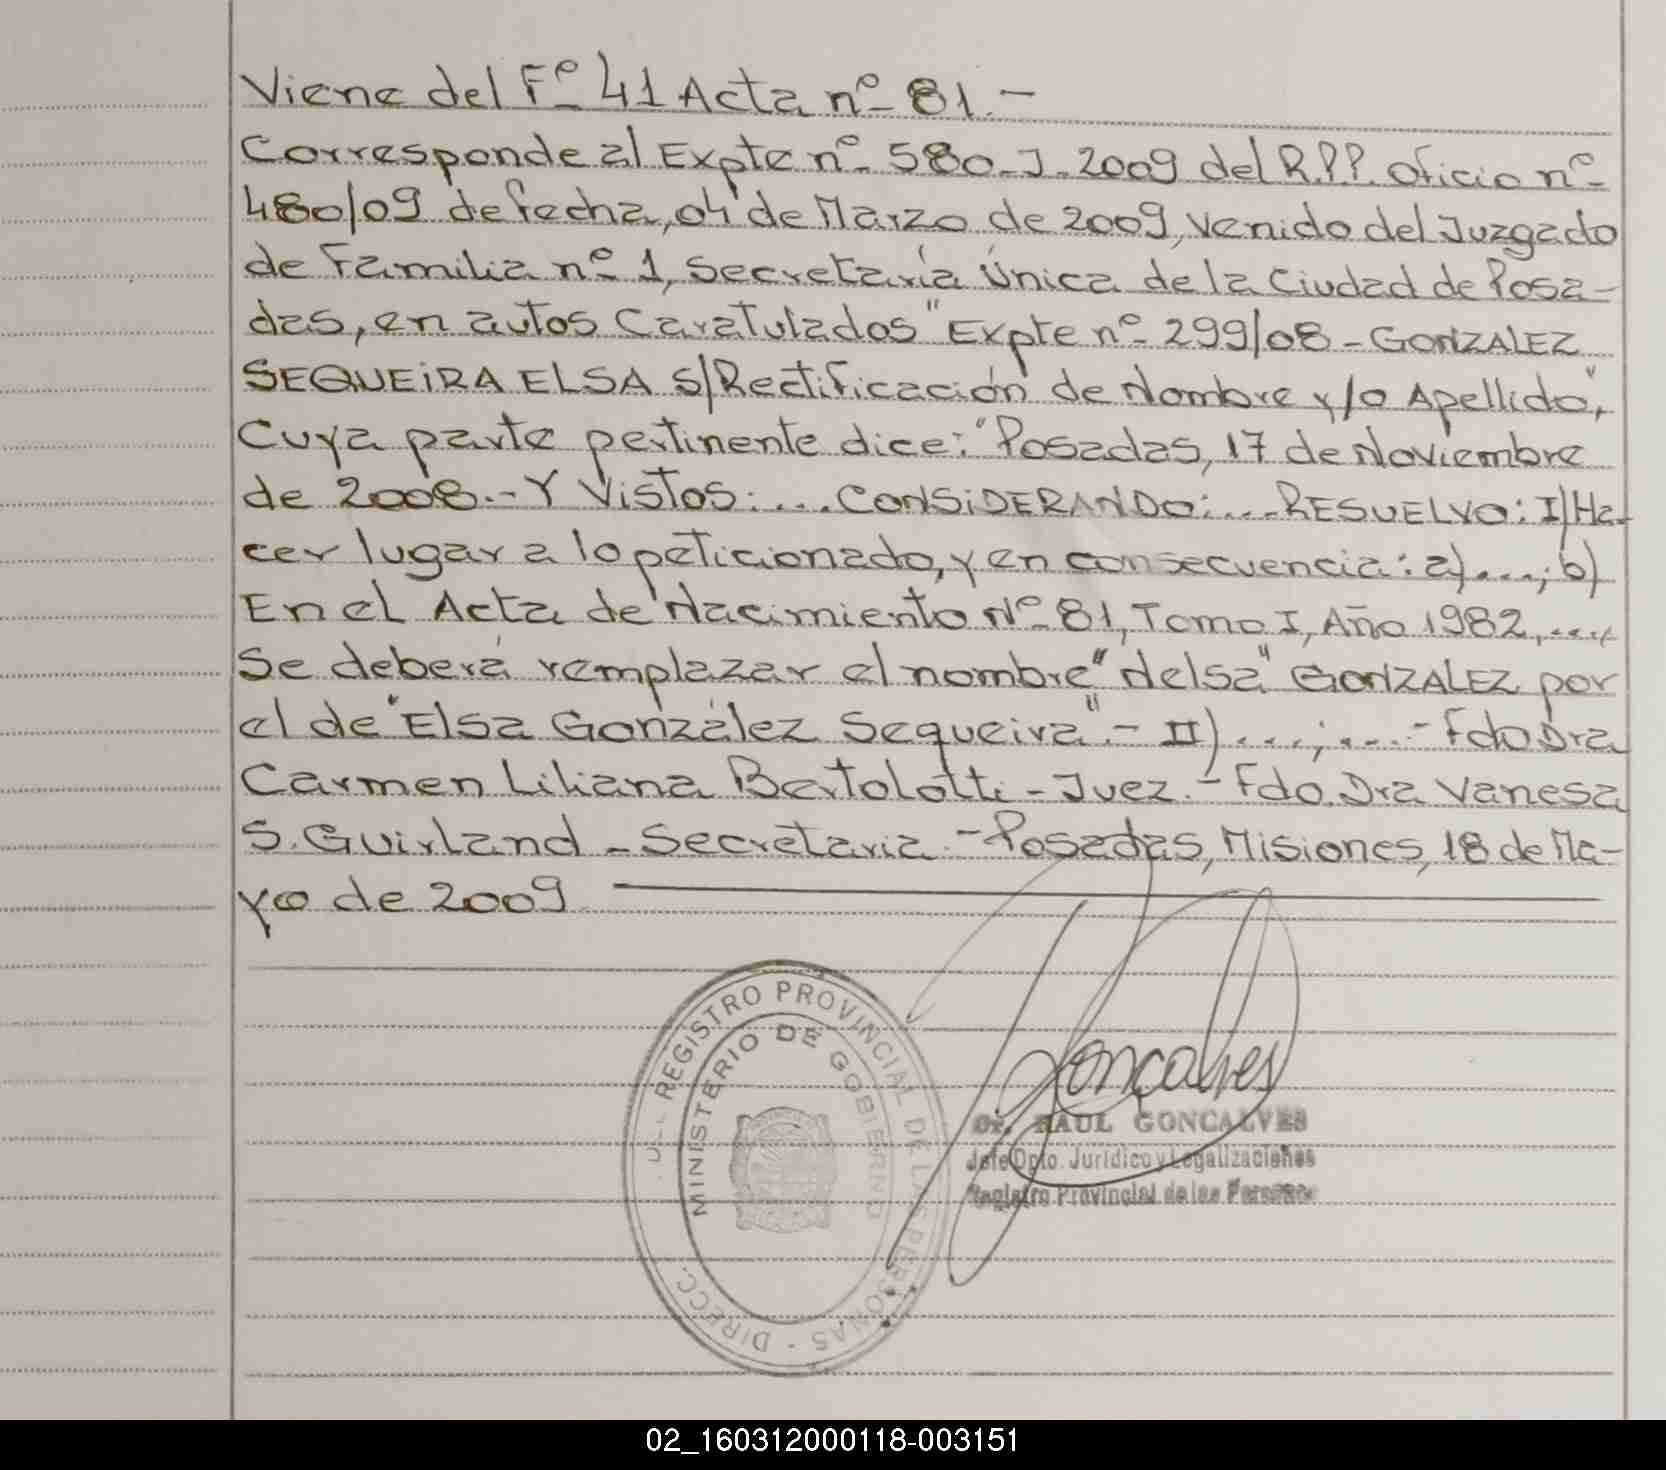 Viene del Fº 41 Acta nº 81.-
Corresponde al Expte nº 580-J-2009 del R.P.P. Oficio nº
480/09 de fecha, 04 de Marzo de 2009, venido del Juzgado
de Familia nº 1, Secretaría Única de la Ciudad de Posa-
das, en autos Caratulados "Expte nº 299/08 - GONZALEZ
SEQUEIRA ELSA S/Rectificación de Nombre y/o Apellido",
Cuya parte pertinente dice: "Posadas, 17 de Noviembre
de 2008.- Y Vistos:... CONSIDERANDO:... RESUELVO: I) Ha-
cer lugar a lo peticionado, y en consecuencia: a)...; b)
En el Acta de Nacimiento Nº 81, Tomo I, Año 1982, ....,
Se deberá remplazar el nombre "Nelsa" GONZALEZ por
el de "Elsa González Sequeira".- II) ...;...- Fdo Dra
Carmen Liliana Bertolotti - Juez.- Fdo. Dra Vanesa
S. Guirland - Secretaria.- Posadas, Misiones, 18 de Ma-
yo de 2009
DIRECC. REGISTRO PROVINCIAL DE LAS PERSONAS -
MINISTERIO DE GOBIERNO
Goncalves
Dr. RAUL GONCALVES
Jefe Dpto. Jurídico y Legalizaciones
Registro Provincial de las Personas
02_160312000118-003151